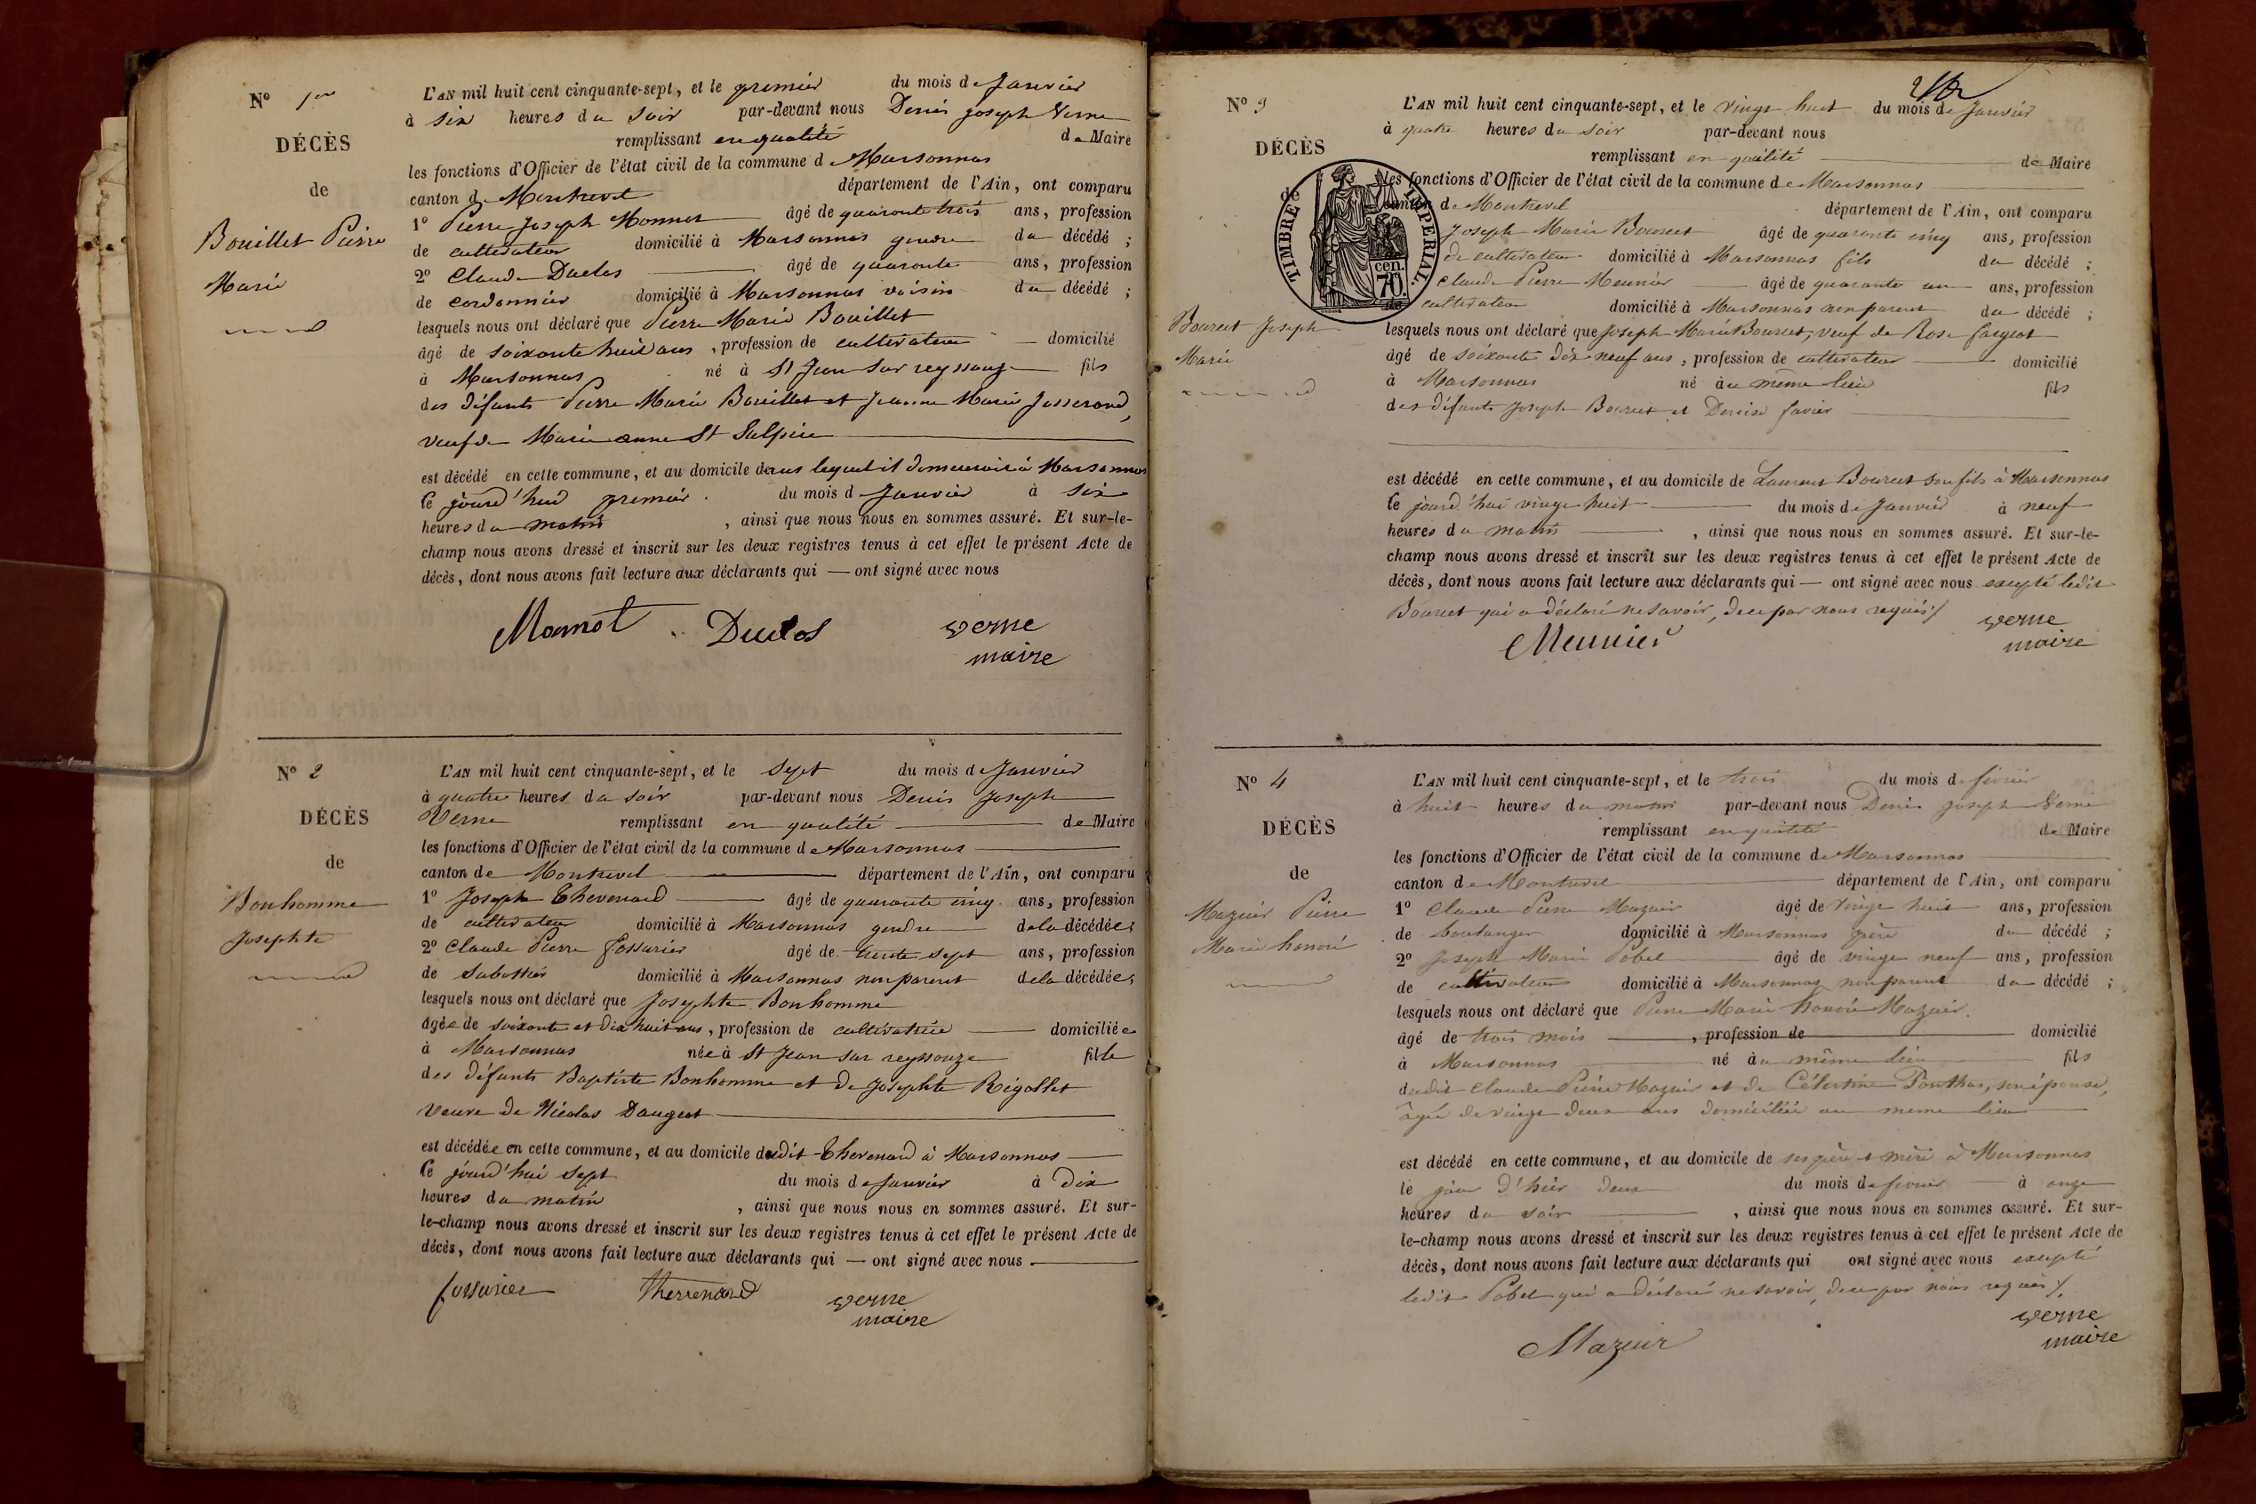 N° 1er
DÉCÈS
de
Bouillet Pierre
Marie
L'AN mil huit cent cinquante-sept, et le premier du mois de Janvier
à six heures du soir par-devant nous Denis Joseph Verne
remplissant en qualité de Maire
les fonctions d'Officier de l'état civil de la commune de Marsonnas
canton de Montrevel département de l'Ain, ont comparu
1° Pierre Joseph Monnot âgé de quarante trois ans, profession
de cultivateur domicilié à Marsonnas gendre du décédé ;
2° Claude Duclos âgé de quarante ans, profession
de cordonnier domicilié à Marsonnas voisin du décédé ;
lesquels nous ont déclaré que Pierre Marie Bouillet
âgé de soixante huit ans, profession de cultivateur domicilié
à Marsonnas né à St Jean sur reyssouze fils
des défunts Pierre Marie Bouillet et Jeanne Marie Josserand,
veuf de Marie anne St Sulpice
est décédé en cette commune, et au domicile dans lequel il demeurait à Marsonnas
ce jourd'hui premier du mois de Janvier à six
heures du matin, ainsi que nous nous en sommes assuré. Et sur-le-
champ nous avons dressé et inscrit sur les deux registres tenus à cet effet le présent Acte de
décès, dont nous avons fait lecture aux déclarants qui — ont signé avec nous
Monnot Duclos verne
maire
N° 2
DÉCÈS
de
Bonhomme
Josephte
L'AN mil huit cent cinquante-sept, et le sept du mois de Janvier
à quatre heures du soir par-devant nous Denis Joseph
Verne remplissant en qualité de Maire
les fonctions d'Officier de l'état civil de la commune de Marsonnas
canton de Montrevel département de l'Ain, ont comparu
1° Joseph Thevenard âgé de quarante cinq ans, profession
de cultivateur domicilié à Marsonnas gendre de la décédée;
2° Claude Pierre Fossurier âgé de trente sept ans, profession
de Sabottier domicilié à Marsonnas non parent de la décédée;
lesquels nous ont déclaré que Josephte Bonhomme
âgée de soixante et dix huit ans, profession de cultivatrice domiciliée
à Marsonnas née à St Jean sur reyssouze fille
des défunts Baptiste Bonhomme et de Josephte Rigollet
veuve de Nicolas Daugeat
est décédée en cette commune, et au domicile dudit Thevenard à Marsonnas
ce jourd'hui sept du mois de Janvier à dix
heures du matin, ainsi que nous nous en sommes assuré. Et sur-
le-champ nous avons dressé et inscrit sur les deux registres tenus à cet effet le présent Acte de
décès, dont nous avons fait lecture aux déclarants qui — ont signé avec nous
fossurier Thevenard verne
maire
N° 3
DÉCÈS
de
TIMBRE IMPERIAL
cen.
70.
Bourcet Joseph
Marie
L'AN mil huit cent cinquante-sept, et le vingt huit du mois de Janvier
à quatre heures du soir par-devant nous
remplissant en qualité de Maire
les fonctions d'Officier de l'état civil de la commune de Marsonnas
canton de Montrevel département de l'Ain, ont comparu
Joseph Marie Bourcet âgé de quarante cinq ans, profession
de cultivateur domicilié à Marsonnas fils du décédé ;
Claude Pierre Meunier âgé de quarante un ans, profession
de cultivateur domicilié à Marsonnas non parent du décédé ;
lesquels nous ont déclaré que Joseph Marie Bourcet, veuf de Rose fargeot
âgé de soixante dix neuf ans, profession de cultivateur domicilié
à Marsonnas né au même lieu fils
des défunts Joseph Bourcet et Denise favier
est décédé en cette commune, et au domicile de Laurent Bourcet son fils à Marsonnas
ce jourd'hui vingt huit du mois de Janvier à neuf
heures du matin, ainsi que nous nous en sommes assuré. Et sur-le-
champ nous avons dressé et inscrit sur les deux registres tenus à cet effet le présent Acte de
décès, dont nous avons fait lecture aux déclarants qui — ont signé avec nous excepté ledit
Bourcet qui a déclaré ne savoir, de ce par nous requis
Meunier verne
maire
N° 4
DÉCÈS
de
Mazuir Pierre
Marie honoré
L'AN mil huit cent cinquante-sept, et le trois du mois de février
à huit heures du matin par-devant nous Denis Joseph Verne
remplissant en qualité de Maire
les fonctions d'Officier de l'état civil de la commune de Marsonnas
canton de Montrevel département de l'Ain, ont comparu
1° Claude Pierre Mazuir âgé de vingt huit ans, profession
de boulanger domicilié à Marsonnas père du décédé ;
2° Joseph Marie Pobel âgé de vingt neuf ans, profession
de cultivateur domicilié à Marsonnas non parent du décédé ;
lesquels nous ont déclaré que Pierre Marie honoré Mazuir
âgé de trois mois, profession de domicilié
à Marsonnas né au même lieu fils
dudit Claude Pierre Mazuir et de Célestine Ponthus, son épouse,
âgée de vingt deux ans domiciliée au meme lieu
est décédé en cette commune, et au domicile de ses père et mère à Marsonnas
le jour d'hier deux du mois de fevrier à onze
heures du soir, ainsi que nous nous en sommes assuré. Et sur-
le-champ nous avons dressé et inscrit sur les deux registres tenus à cet effet le présent Acte de
décès, dont nous avons fait lecture aux déclarants qui ont signé avec nous excepté
ledit Pobel qui a déclaré ne savoir, de ce par nous requis
Mazuir verne
maire